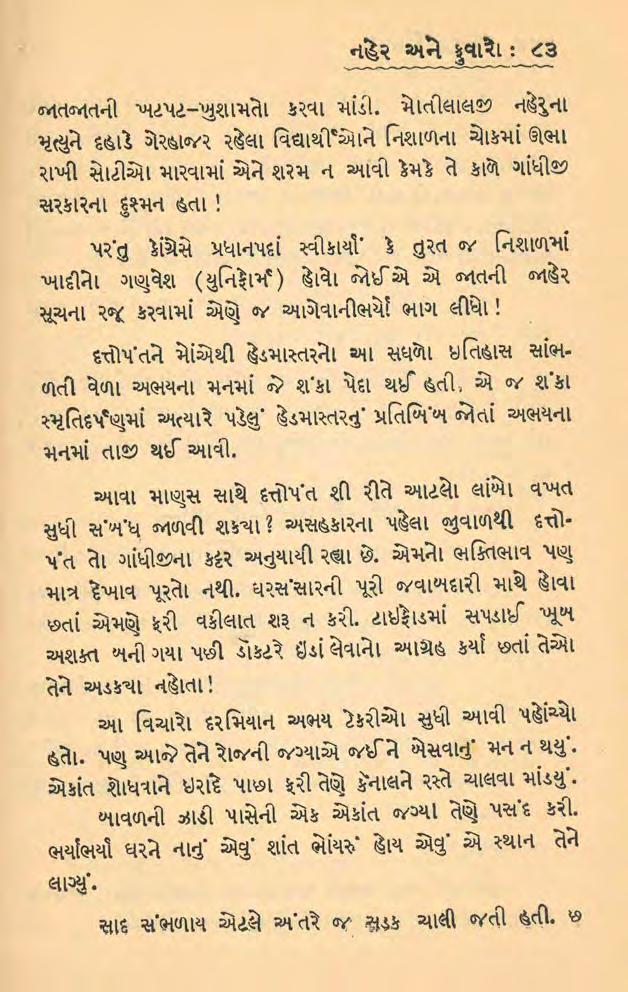 નહેર અને ફુવારો : ૮૩
જાતજાતની ખટપટ–ખુશામતો કરવા માંડી. મોતીલાલજી નહેરુના
મૃત્યુને દહાડે ગેરહાજર રહેલા વિદ્યાર્થીઓને નિશાળના ચોકમાં ઊભા
રાખી સોટીઓ મારવામાં એને શરમ ન આવી કેમકે તે કાળે ગાંધીજી
સરકારના દુશ્મન હતા !
પરંતુ કોંગ્રેસે પ્રધાનપદાં સ્વીકાર્યાં કે તુરત જ નિશાળમાં
ખાદીનો ગણવેશ (યુનિફોર્મ) હોવો જોઈએ એ જાતની જાહેર
સૂચના રજૂ કરવામાં એણે જ આગેવાનીભર્યો ભાગ લીધો !
દત્તોપંતને મોંએથી હેડમાસ્તરનો આ સઘળો ઇતિહાસ સાંભ-
ળતી વેળા અભયના મનમાં જે શંકા પેદા થઈ હતી, એ જ શંકા
સ્મૃતિદર્પણમાં અત્યારે પડેલું હેડમાસ્તરનું પ્રતિબિંબ જોતાં અભયના
મનમાં તાજી થઈ આવી.
આવા માણસ સાથે દત્તોપંત શી રીતે આટલો લાંબો વખત
સુધી સંબંધ જાળવી શક્યા ? અસહકારના પહેલા જુવાળથી દત્તો-
પંત તો ગાંધીજીના કટ્ટર અનુયાયી રહ્યા છે. એમનો ભક્તિભાવ પણ
માત્ર દેખાવ પૂરતો નથી. ઘરસંસારની પૂરી જવાબદારી માથે હોવા
છતાં એમણે ફરી વકીલાત શરૂ ન કરી. ટાઇફોડમાં સપડાઈ ખૂબ
અશક્ત બની ગયા પછી ડૉકટરે ઇંડાં લેવાનો આગ્રહ કર્યા છતાં તેઓ
તેને અડક્યા નહોતા !
આ વિચારો દરમિયાન અભય ટેકરીઓ સુધી આવી પહોંચ્યો
હતો. પણ આજે તેને રોજની જગ્યાએ જઈને બેસવાનું મન ન થયું.
એકાંત શોધવાને ઇરાદે પાછા ફરી તેણે કૅનાલને રસ્તે ચાલવા માંડયું.
બાવળની ઝાડી પાસેની એક એકાંત જગ્યા તેણે પસંદ કરી.
ભર્યાંભર્યાં ઘરને નાનું એવું શાંત ભોંયરું હોય એવું એ સ્થાન તેને
લાગ્યું.
સાદ સંભળાય એટલે અંતરે જ સડક ચાલી જતી હતી. છ